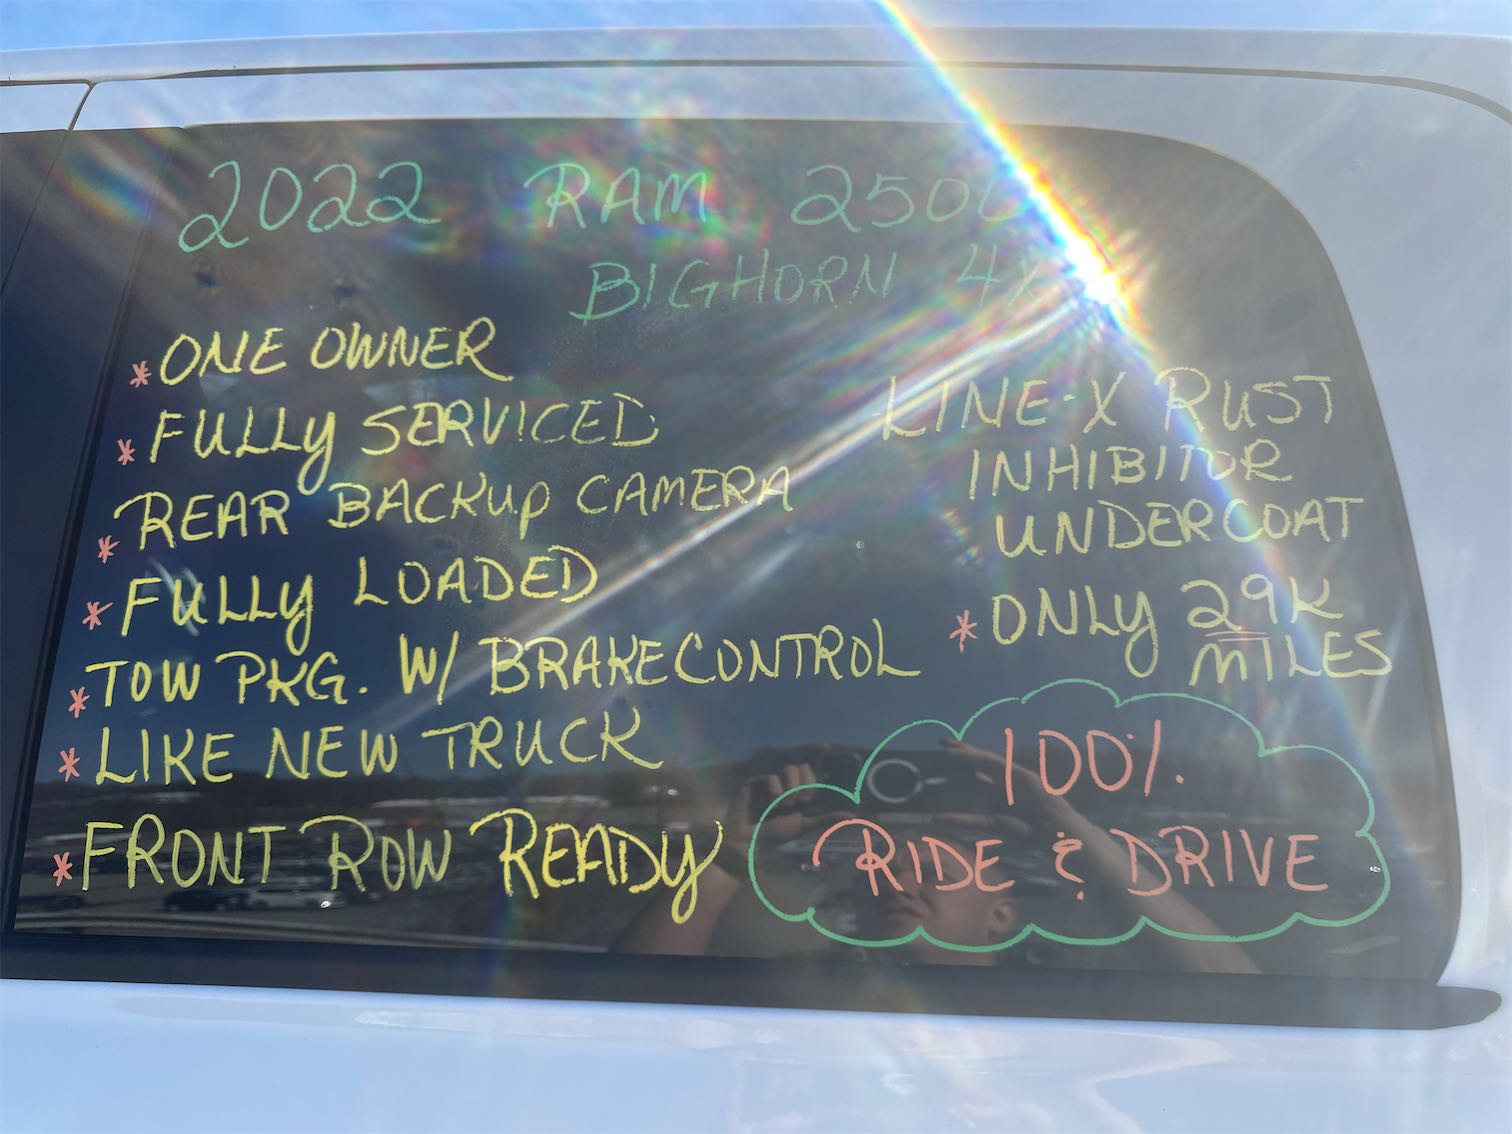 2022 RAM 2500
BIGHORN 4X
* ONE OWNER
* FULLY SERVICED
* REAR BACKUP CAMERA
* FULLY LOADED
* TOW PKG. W/ BRAKE CONTROL
* LIKE NEW TRUCK
* FRONT ROW READY
LINE-X RUST
INHIBITOR
UNDERCOAT
* ONLY 29K
MILES
100%
RIDE & DRIVE